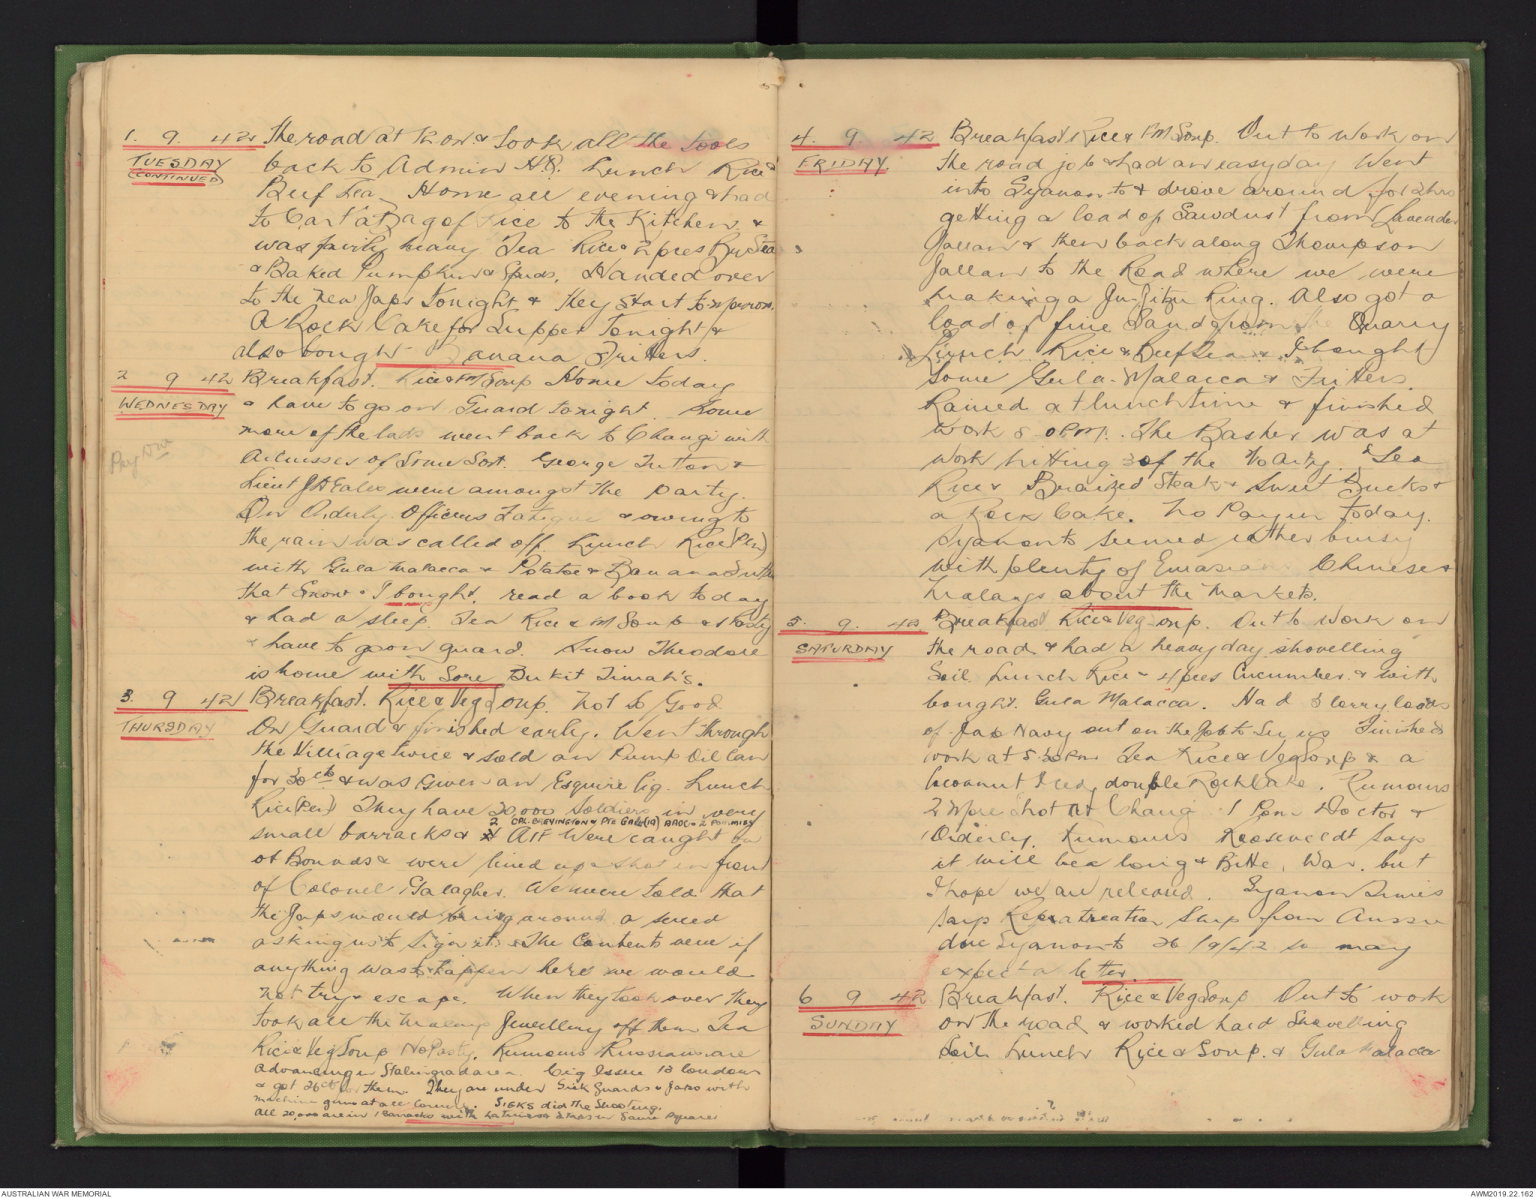 1. 9. 42 The road at & took all the tools
TUESDAY back to Admin H.Q. Lunch Rice &
(CONTINUED) Beef Tea. Home all evening & had
to Cart a Bag of rice to the Kitchen &
was fairly heavy Tea Rice & 2 pces
& Baked Pumpkin & Spuds. Handed over
to the new Japs Tonight & they start to
A Rock Cake for Supper Tonight &
also bought Banana Fritters.
2 9 42 Breakfast. Rice & M/Soup Home Today
WEDNESDAY & have to go on Guard tonight. Some
more of the lads went back to Changi with
of Some Sort. George &
Lieut were amongst the party.
On Orderly Officers Fatigue & owing to
the rain was called off. Lunch Rice (Pln)
with Gula Malacca & Potatoe & Banana
that Snow & I bought. read a book today
& had a sleep. Tea Rice & M Soup & Pasty
& have to go on guard. Snow Theodore
is home with Some Bukit Timah's.
3. 9 42 Breakfast. Rice & Veg Soup. Not so Good
THURSDAY On Guard & finished early. Went through
the Villiage twice & sold an Pump Oil Can
for 30 cts & was given an Esquire Cig. Lunch
Rice (Pln) They have 20,000 Soldiers in very
2 CPL. BREVINGTON & PTE GALE (19) AAOC & 2 POMMIES
small barracks & AIF were caught out
of Bounds & were lined up & shot in front
of Colonel Galagher. We were told that
the Japs would bring around a
asking us to sign it. The Contents were if
anything was to happen here we would
not try & escape. When they took over they
took all the Malays Jewellery off them Tea
Rice & Veg Soup No Pasty. Rumours Russians are
advancing in Stalingrad area. Cig Issue 13 London
& got 26 cts for them. They are under Siek Guards & Japs with
machine guns at all Corners. SIEKS did the Shooting.
all 20,000 are in 1 Barracks with Latrines & in Same Square
4. 9. 42 Breakfast Rice & M Soup. Out to Work on
FRIDAY the road job & had an easy day Went
into Syanan to & drove around for 2 hrs
getting a load of Sawdust from Lavender
Jallan & then back along Thompson
Jallan to the Road where we were
making a Ju-Jitzu Ring. Also got a
load of fine Sand from the Quarry
Lunch. Rice & Beef Tea & I bought
some Gula-Malacca & Fritters.
Rained at lunch time & finished
work 5.0 P.M. The Basher was at
work hitting 3 of the Party. Tea
Rice & Braized Steak & Sweet Bucks &
a Rock Cake. No Payen Today.
Syanan to seemed rather busy
with plenty of Eurasian Chinese &
Malays about the Markets.
5. 9. 42 Breakfast Rice & Veg Soup. Out to Work on
SATURDAY the road & had a heavy day shovelling
Soil. Lunch Rice & 4 pces Cucumber & with
bought Gula Malacca. Had 3 lorry loads
of Jap Navy out on the Job to See us Finished
work at 5.30 PM Tea Rice & Veg Soup & a
Cocoanut Iced, double Rock Cake. Rumours
2 More Shot At Changi 1 Pom Doctor &
1 Orderly. Rumours Rooseveldt Says
it will be a long & Bitte War. but
I hope we are released. Syanan Times
says Repatreation Ship from Aussie
due Syanan to 26/9/42 so may
expect a letter.
6 9 42 Breakfast. Rice & Veg Soup Out to work
SUNDAY on the road & worked hard Shovelling
Soil. Lunch Rice & Soup. & Gula Malacca
AUSTRALIAN WAR MEMORIAL
AWM2019.22.162